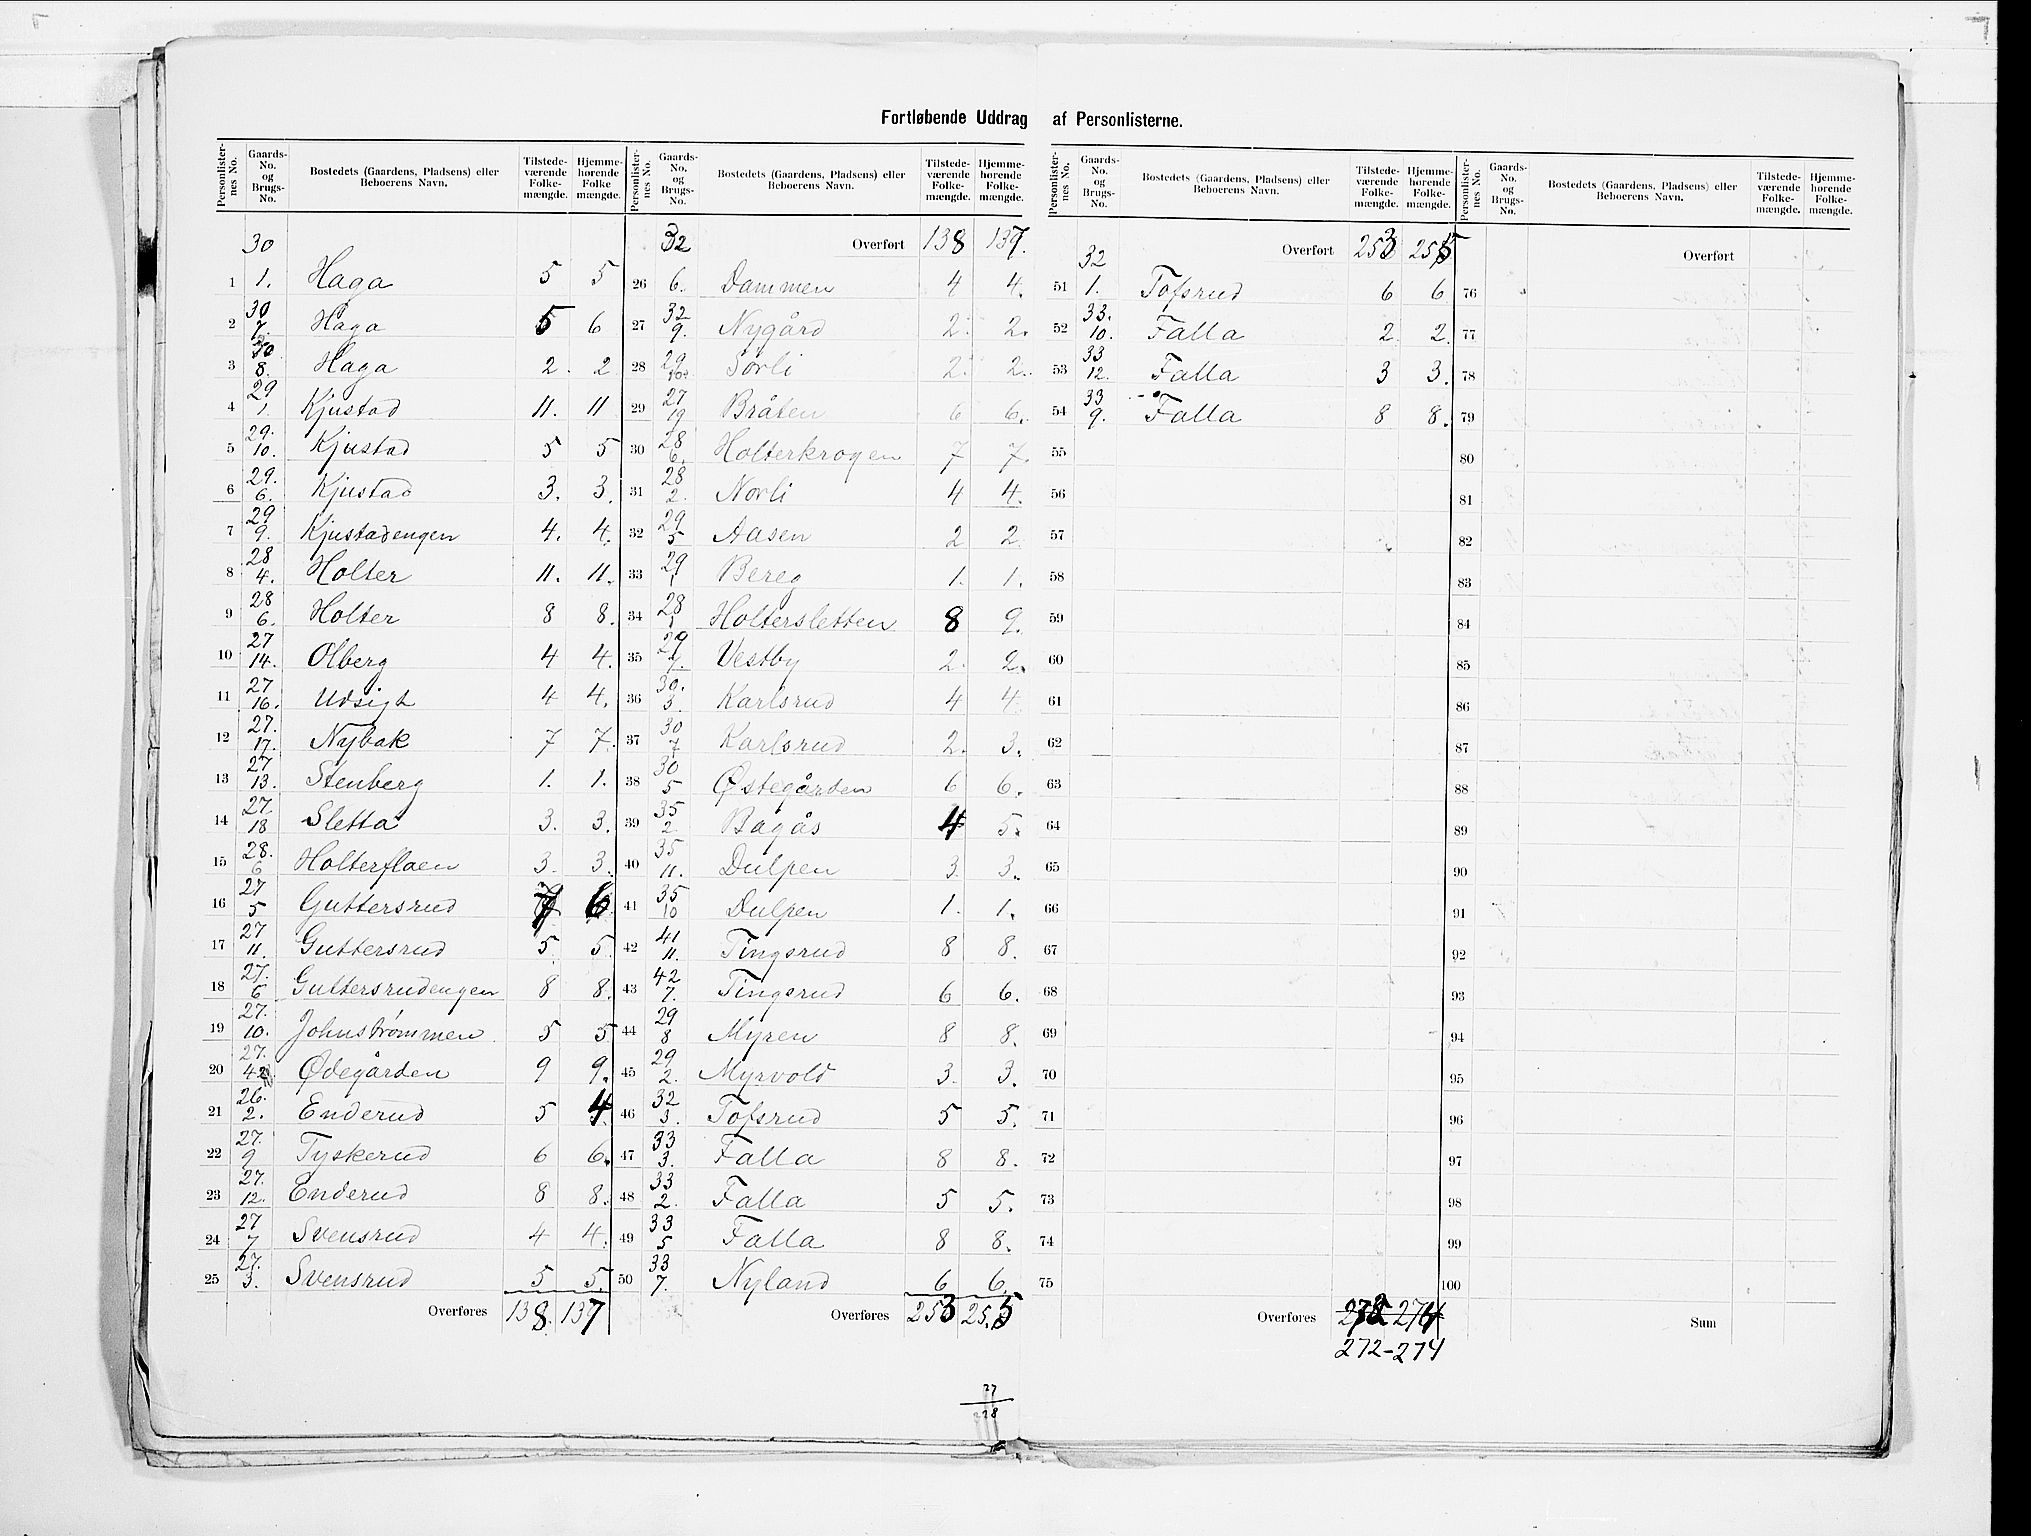 Fortløbende Uddrag af Personlisterne.
Personlister-nes No. | Gaards-No. og Brugs-No. | Bostedets (Gaardens, Pladsens) eller Beboerens Navn. | Tilstede-værende Folke-mængde. | Hjemme-hørende Folke mængde.
1 | 30 1. | Haga | 5 | 5
2 | 30 7. | Haga | 5 | 6
3 | 30 8. | Haga | 2. | 2
4 | 29 1. | Kjustad | 11. | 11
5 | 29. 10. | Kjustad | 5 | 5
6 | 29. 6. | Kjustad | 3. | 3.
7 | 29 9. | Kjustadengen | 4. | 4.
8 | 28 4. | Holter | 11. | 11.
9 | 28 6. | Holter | 8 | 8.
10 | 27 14. | Olberg | 4 | 4.
11 | 27 16. | Udsigt | 4 | 4.
12 | 27. 17. | Nybak | 7 | 7.
13 | 27 13. | Stenberg | 1. | 1.
14 | 27. 18 | Sletta | 3. | 3.
15 | 28. 6 | Holterflaen | 3. | 3.
16 | 27 5 | Guttersrud | 7 | 6
17 | 27 11. | Guttersrud | 5 | 5
18 | 27. 6 | Guttersrudengen | 8 | 8.
19 | 27. 10. | Johnstrømmen | 5 | 5
20 | 27. 42 | Ødegården | 9 | 9.
21 | 26. 2. | Enderud | 5 | 4
22 | 27. 9 | Tyskerud | 6 | 6.
23 | 27. 12. | Enderud | 8 | 8.
24 | 27 7 | Svensrud | 4 | 4.
25 | 27. 3. | Svensrud | 5 | 5
Overføres 138. 137
Personlister-nes No. | Gaards-No. og Brugs-No. | Bostedets (Gaardens, Pladsens) eller Beboerens Navn. | Tilstede-værende Folke-mængde. | Hjemme-hørende Folke-mængde.
Overført 138 137.
26 | 32 6. | Dammen | 4 | 4.
27 | 32 9. | Nygård | 2. | 2.
28 | 29 10. | Sørli | 2. | 2.
29 | 27 19 | Bråten | 6 | 6.
30 | 28 6. | Holterkrogen | 7 | 7.
31 | 28 2. | Norli | 4 | 4.
32 | 29 5 | Aasen | 2 | 2.
33 | 29 1 | Bereg | 1. | 1.
34 | 28 1 | Holtersletten | 8 | 9.
35 | 29 7. | Vestby | 2. | 2.
36 | 30. 3. | Karlsrud | 4 | 4
37 | 30 7 | Karlsrud | 2. | 3.
38 | 30 5 | Østegården | 6 | 6.
39 | 35 2. | Bagås | 4 | 5.
40 | 35 11. | Dulpen | 3. | 3.
41 | 35 10 | Dulpen | 1. | 1.
42 | 41 11. | Tingsrud | 8 | 8.
43 | 42 7. | Tingsrud | 6 | 6.
44 | 29 8 | Myren | 8 | 8.
45 | 29 2. | Myrvold | 3. | 3.
46 | 32 3. | Tofsrud | 5 | 5.
47 | 33 3. | Falla | 8 | 8.
48 | 33 2. | Falla | 5 | 5.
49 | 33 5 | Falla | 8 | 8.
50 | 33 7. | Nyland | 6 | 6.
Overføres 253 255
27
228
Personlister-nes No. | Gaards-No. og Brugs-No. | Bostedets (Gaardens, Pladsens) eller Beboerens Navn. | Tilstede-værende Folke-mængde. | Hjemme-hørende Folke-mængde.
Overført 253 255
51 | 32 1. | Tofsrud | 6 | 6
52 | 33. 10. | Falla | 2. | 2.
53 | 33 12. | Falla | 3 | 3.
54 | 33 9. | Falla | 8 | 8.
55
56
57
58
59
60
61
62
63
64
65
66
67
68
69
70
71
72
73
74
75
Overføres 274
272-274
Personlister-nes No. | Gaards-No. og Brugs-No. | Bostedets (Gaardens, Pladsens) eller Beboerens Navn. | Tilstede-værende Folke-mængde. | Hjemme-hørende Folke-mængde.
Overført
76
77
78
79
80
81
82
83
84
85
86
87
88
89
90
91
92
93
94
95
96
97
98
99
100
Sum